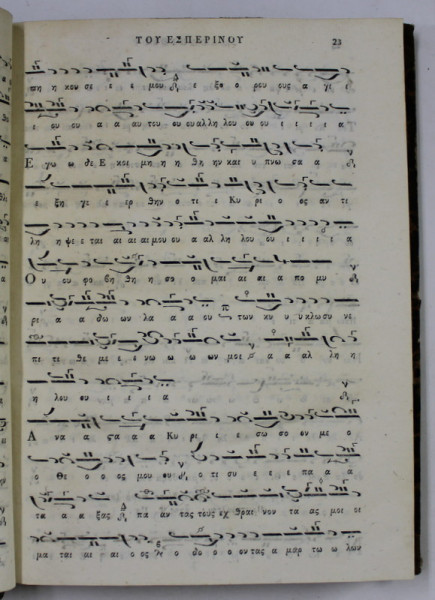 ΤΟΥ ΕΣΠΕΡΙΝΟΥ 23
πη η κου σε ε ε μου ε ξ ο ρους ους α γι ε
ε ου ου α α αυ του ου ου αλλη λου ου ου ι ι ι ι α
Ε γω ω δε Ε κοι μη η η θη ην και υ πνω σα α
ε ξη γε ε ερ θην ο τι ε Κυ ρι ι ος αν τι
λη η ψε ε ται αι αι αι μου ου α αλ λη λου ου ι ε ι ι α
Ο υ ου φο βη θη η σο ο μαι αι αι α πο μυ
ρι α α α δων λα α α ου των κυ υ υ κλω συ νε
πι τι θε με ε ε νω ω ω ων μοι α α αλ λη η
η λου ου ι ι ι α
Α να α ϛα α α Κυ ρι ε ε ε σω σο ον με ο
ο Θε ο ο ος μου ου ο τι συ ε ε ε πα α α
τα α α ξας πα αν τας τους εχ θραι νον τα ας μοι οι
μα ται αι αι ο ως ο δο ο ο ον τας α μαρ τω ω λων